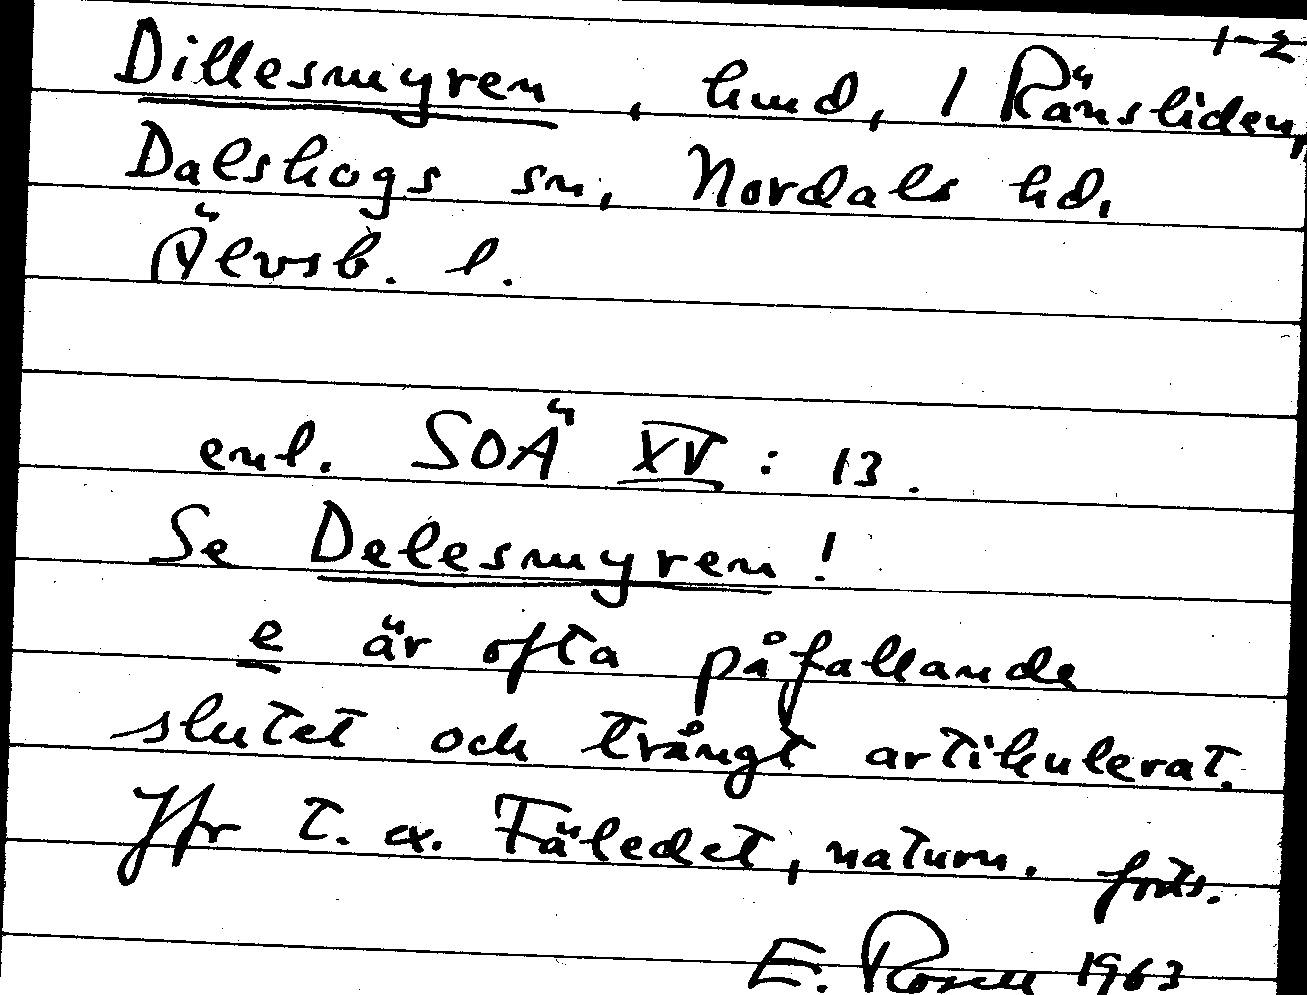 1-2
Dillesmyren, hmd, / Ränsliden,
Dalskogs sn, Nordals hd.
Älvsb. l.
enl. SOÄ XV : 13.
Se Delesmyren!
e är ofta påfallande
slutet och trångt artikulerat.
Jfr t. ex. Fäledet, naturn. forts.
E. Rosell 1963